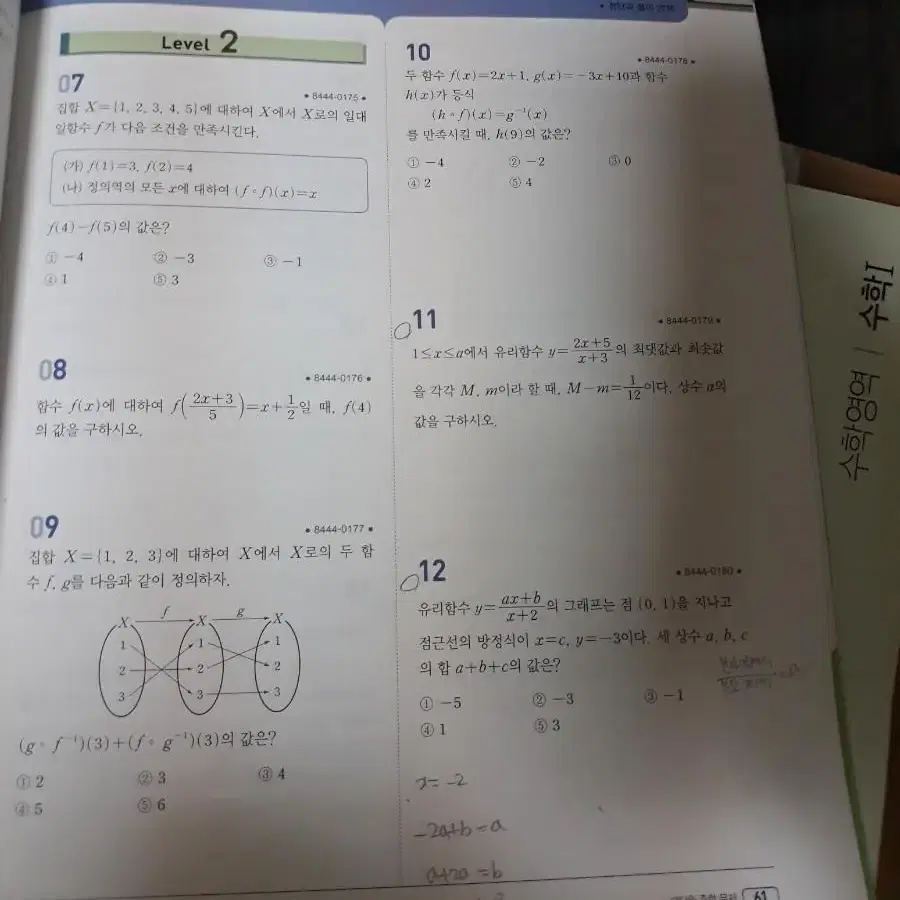 Level 2
07
• 8444-0175 •
집합 X={1, 2, 3, 4, 5}에 대하여 X에서 X로의 일대
일함수 f가 다음 조건을 만족시킨다.
(가) f(1)=3, f(2)=4
(나) 정의역의 모든 x에 대하여 (f∘f)(x)=x
f(4)-f(5)의 값은?
① -4 ② -3 ③ -1
④ 1 ⑤ 3
08
• 8444-0176 •
함수 f(x)에 대하여 f((2x+3)/5)=x+1/2일 때, f(4)
의 값을 구하시오.
09
• 8444-0177 •
집합 X={1, 2, 3}에 대하여 X에서 X로의 두 함
수 f, g를 다음과 같이 정의하자.
f g
X X X
1 1 1
2 2 2
3 3 3
(g∘f⁻¹)(3)+(f∘g⁻¹)(3)의 값은?
① 2 ② 3 ③ 4
④ 5 ⑤ 6
10
• 8444-0178 •
두 함수 f(x)=2x+1, g(x)=-3x+10과 함수
h(x)가 등식
(h∘f)(x)=g⁻¹(x)
를 만족시킬 때, h(9)의 값은?
① -4 ② -2 ③ 0
④ 2 ⑤ 4
11
• 8444-0179 •
1≤x≤a에서 유리함수 y=(2x+5)/(x+3)의 최댓값과 최솟값
을 각각 M, m이라 할 때, M-m=1/12이다. 상수 a의
값을 구하시오.
12
• 8444-0180 •
유리함수 y=(ax+b)/(x+2)의 그래프는 점 (0, 1)을 지나고
점근선의 방정식이 x=c, y=-3이다. 세 상수 a, b, c
의 합 a+b+c의 값은?
① -5 ② -3 ③ -1
④ 1 ⑤ 3
x=-2
-2a+b=a
a+2a=b
61
수학영역 | 수학I